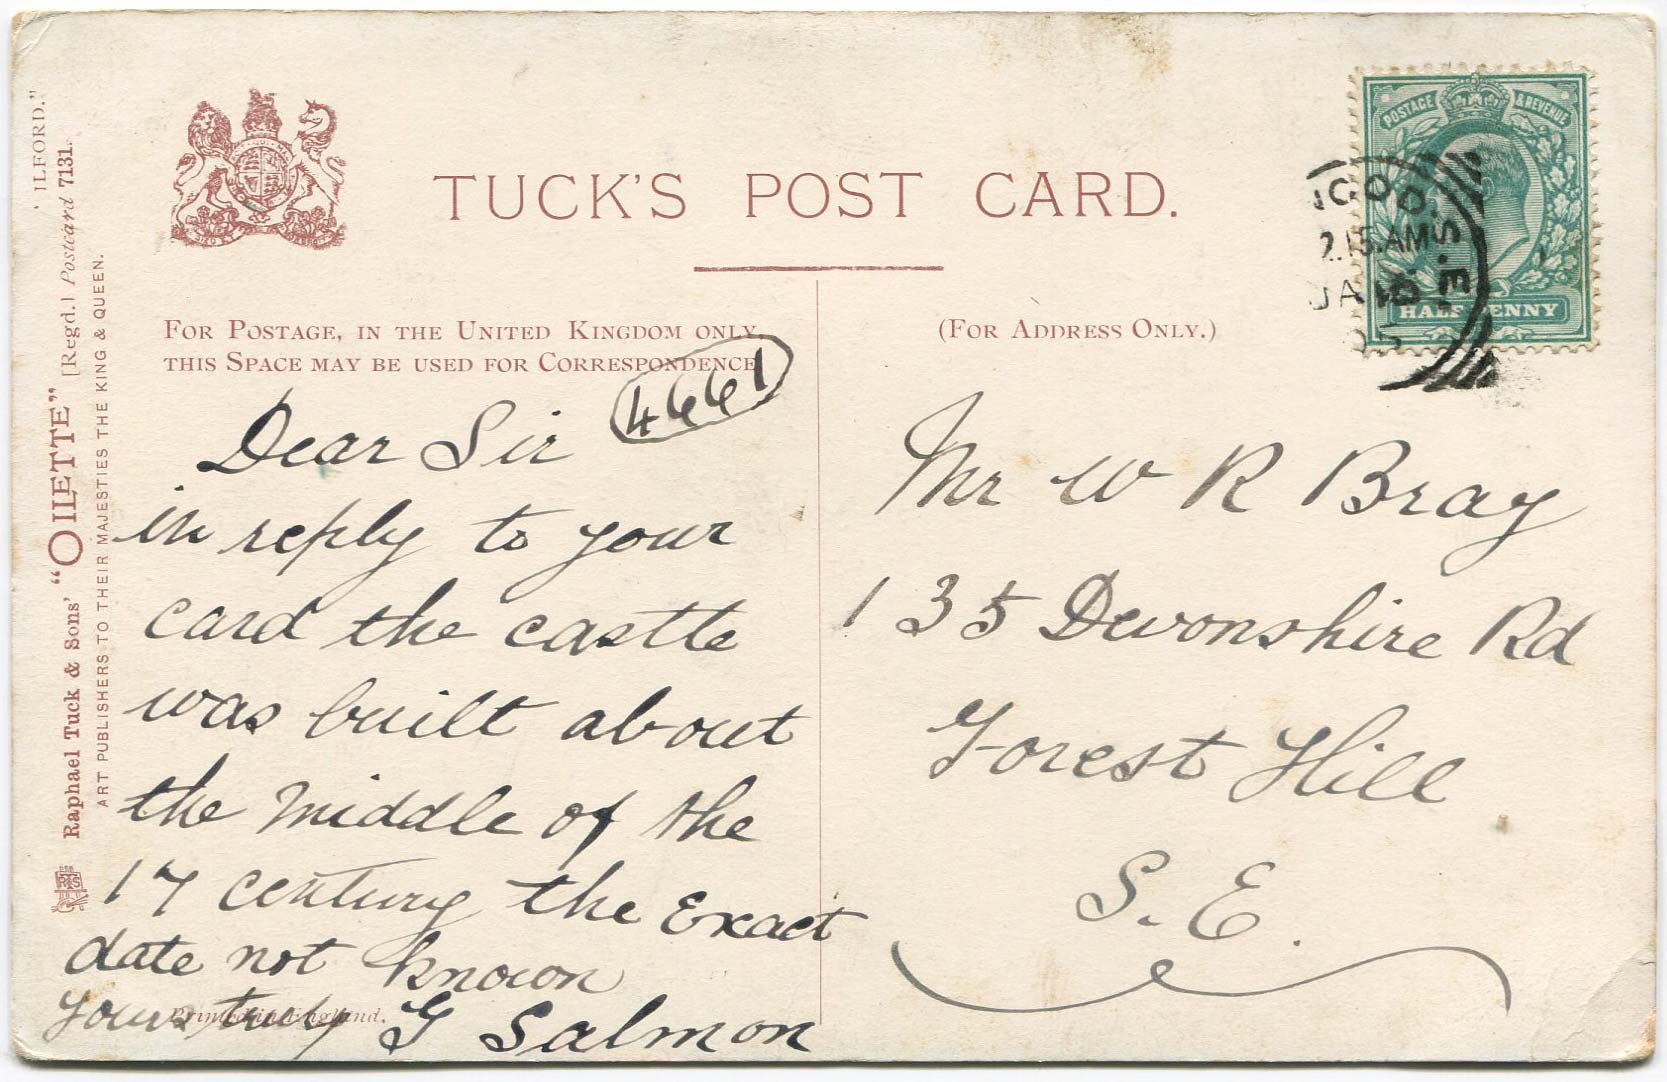 "ILFORD."
Raphael Tuck & Sons' "OILETTE" [Regd.] Postcard 7131.
ART PUBLISHERS TO THEIR MAJESTIES THE KING & QUEEN.
TUCK'S POST CARD.
FOR POSTAGE, IN THE UNITED KINGDOM ONLY,
THIS SPACE MAY BE USED FOR CORRESPONDENCE
(FOR ADDRESS ONLY.)
POSTAGE & REVENUE
HALFPENNY
2.15.AM
JA 10
05
S.E.
4661
Dear Sir
in reply to your
card the castle
was built about
the middle of the
17 century the Exact
date not known
yours truly G Salmon
Printed in England.
Mr W R Bray
135 Devonshire Rd
Forest Hill
S.E.